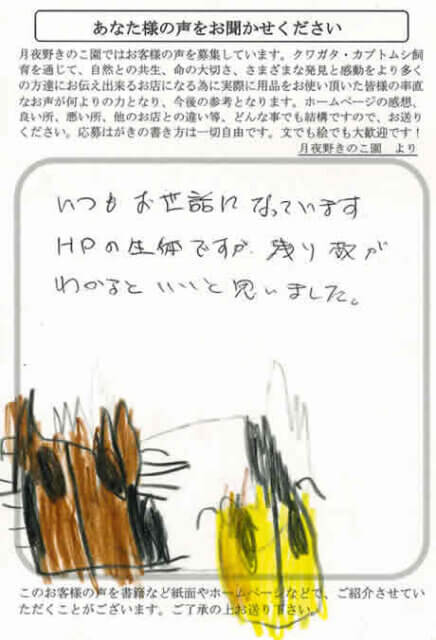 あなた様の声をお聞かせください
月夜野きのこ園ではお客様の声を募集しています。クワガタ・カブトムシ飼
育を通じて、自然との共生、命の大切さ、さまざまな発見と感動をより多く
の方達にお伝え出来るお店になる為に実際に用品をお使い頂いた皆様の率直
なお声が何よりの力となり、今後の参考となります。ホームページの感想、
良い所、悪い所、他のお店との違い等、どんな事でも結構ですので、お送り
ください。応募はがきの書き方は一切自由です。文でも絵でも大歓迎です!
月夜野きのこ園 より
いつもお世話になっています
HPの生体ですが、残り数が
わかるといいと思いました。
このお客様の声を書籍など紙面やホームページなどで、ご紹介させていた
だくことがございます。ご了承の上お送り下さい。